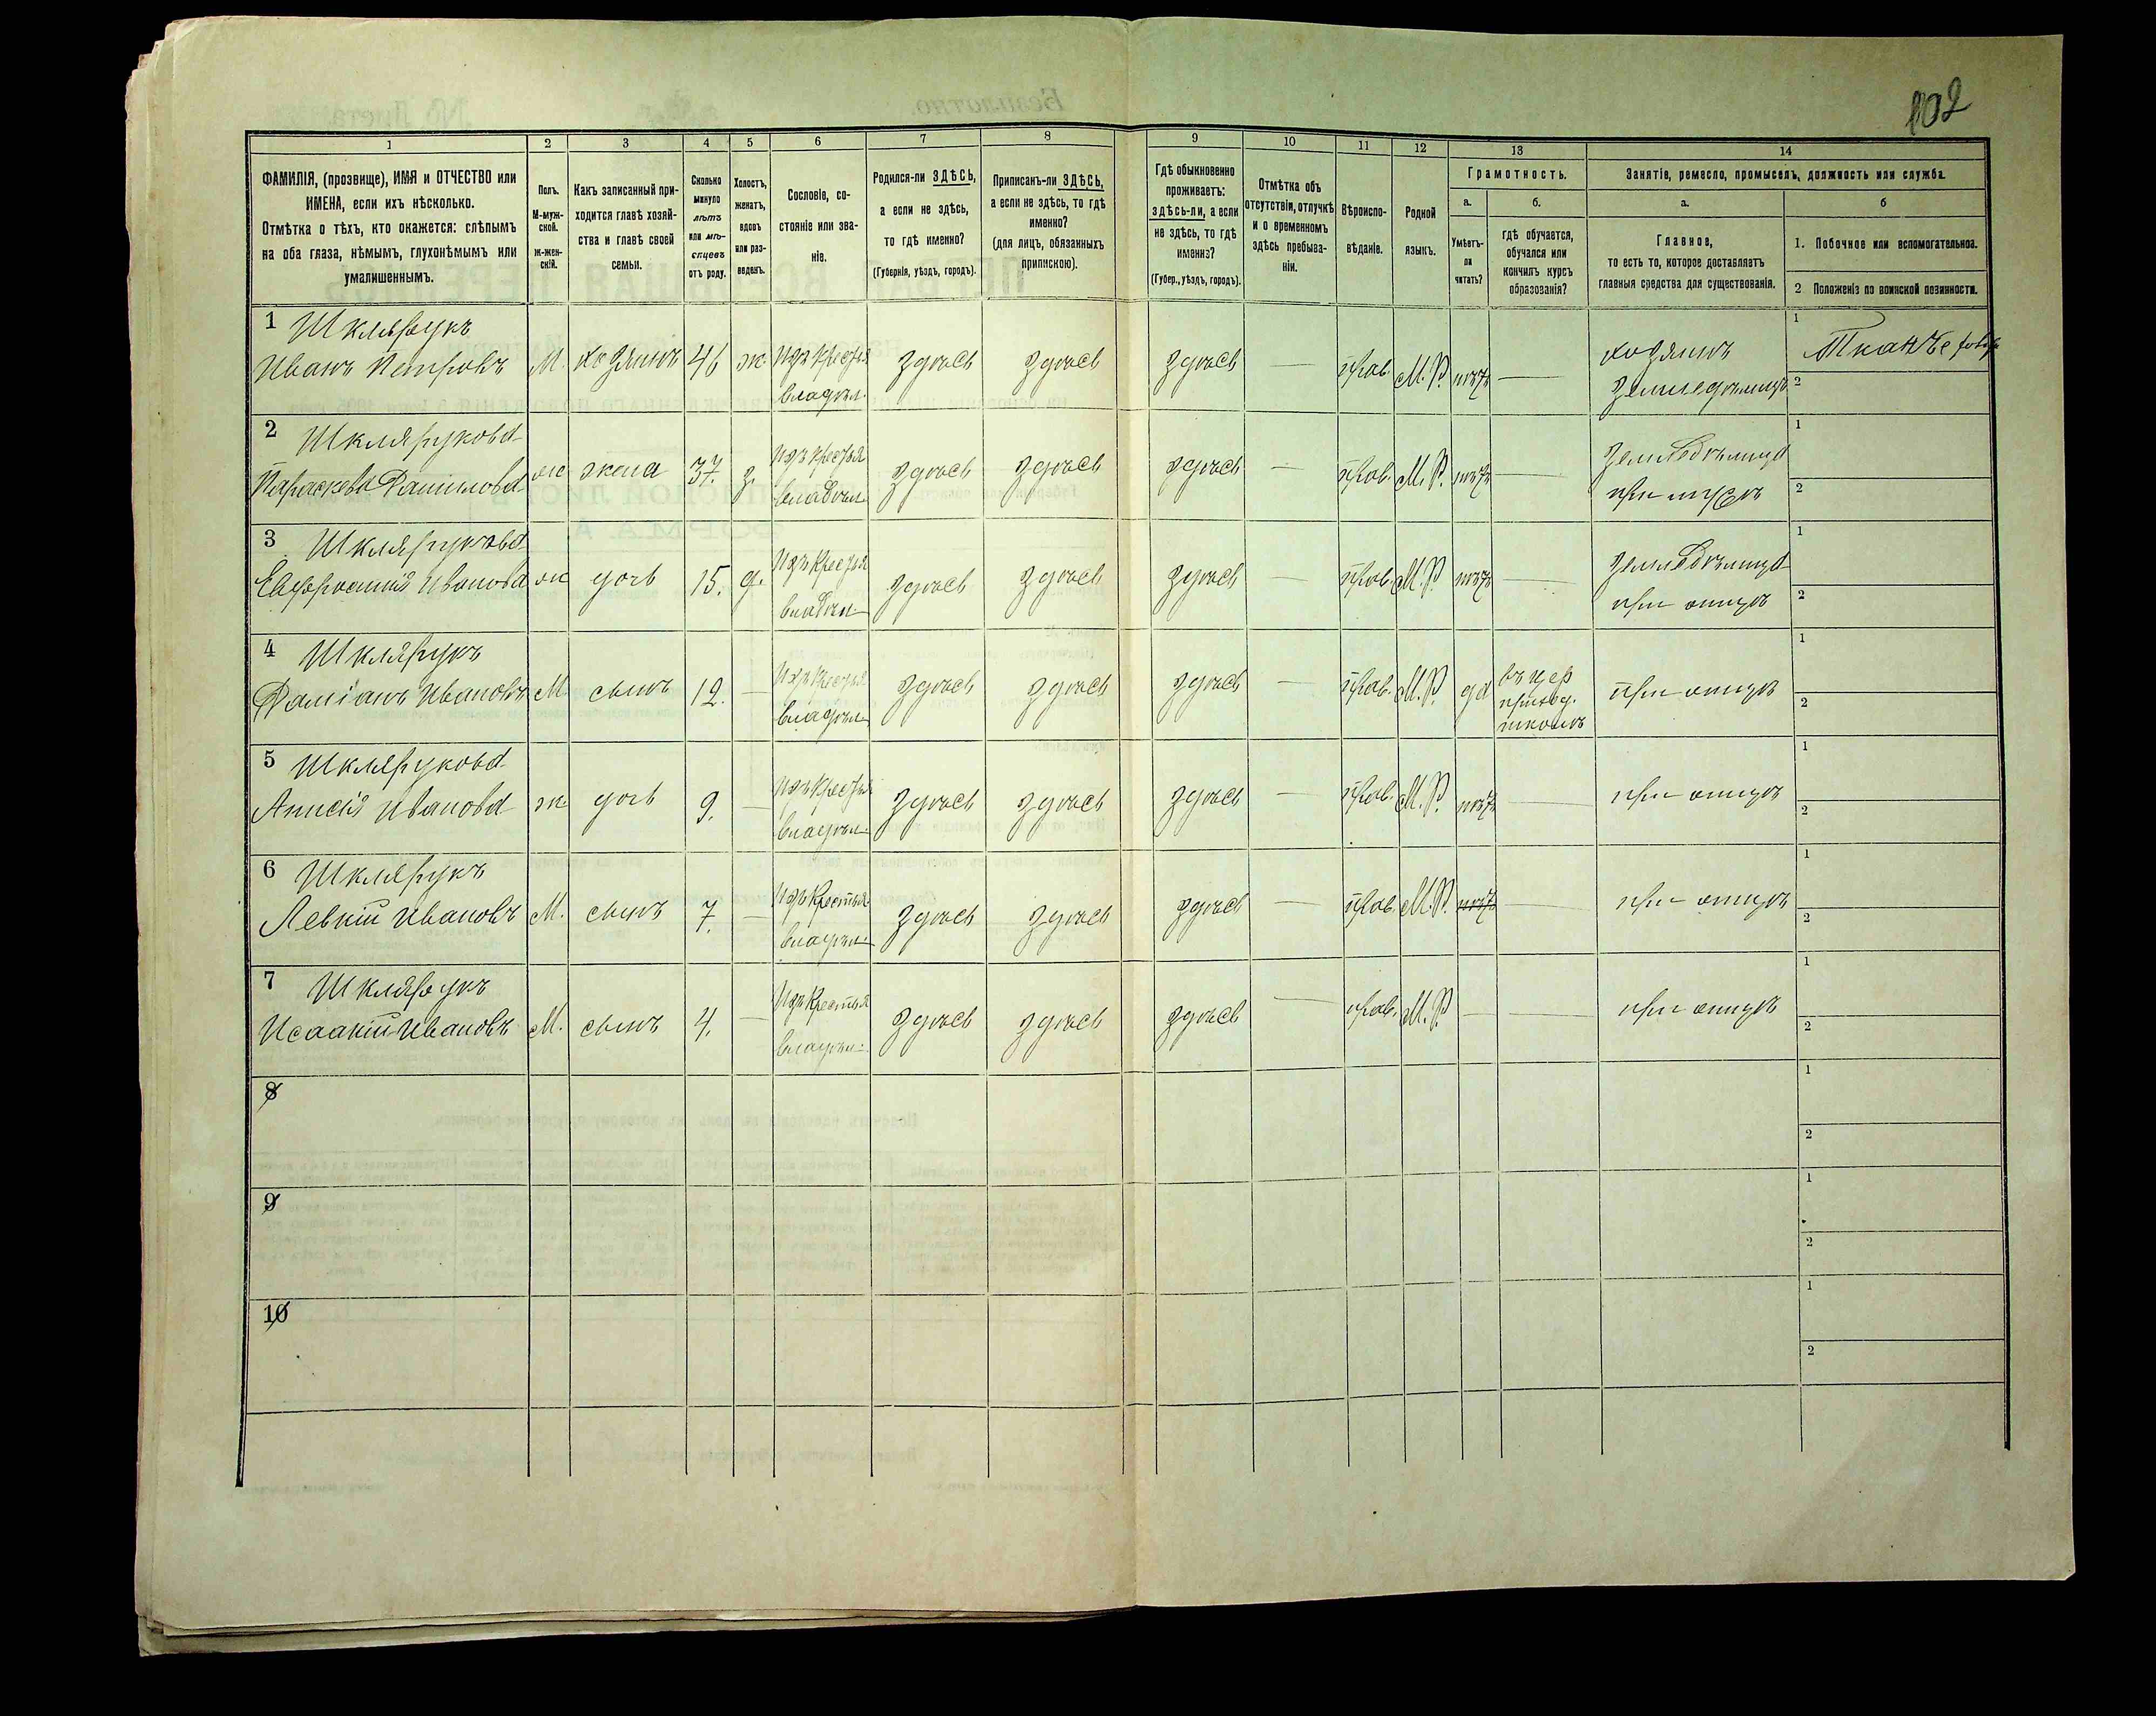 102
1
2
3
4
5
6
7
8
9
10
11
12
13
14
ФАМИЛІЯ, (прозвище), ИМЯ и ОТЧЕСТВО или
ИМЕНА, если ихъ нѣсколько.
Отмѣтка о тѣхъ, кто окажется: слѣпымъ
на оба глаза, нѣмымъ, глухонѣмымъ или
умалишеннымъ.
Полъ.
М-муж-
ской.
ж-жен-
скій.
Какъ записанный при-
ходится главѣ хозяй-
ства и главѣ своей
семьи.
Сколько
минуло
лѣтъ
или мѣ-
сяцевъ
отъ роду.
Холостъ,
женатъ,
вдовъ
или раз-
веденъ.
Сословіе, со-
стояніе или зва-
ніе.
Родился-ли ЗДѢСЬ,
а если не здѣсь,
то гдѣ именно?
(Губернія, уѣздъ, городъ).
Приписанъ-ли ЗДѢСЬ,
а если не здѣсь, то гдѣ
именно?
(для лицъ, обязанныхъ
припискою).
Гдѣ обыкновенно
проживаетъ:
здѣсь-ли, а если
не здѣсь, то гдѣ
именно?
(Губер., уѣздъ, городъ).
Отмѣтка объ
отсутствіи, отлучкѣ
и о временномъ
здѣсь пребыва-
ніи.
Вѣроиспо-
вѣданіе.
Родной
языкъ.
Грамотность.
а.
Умѣетъ-
ли
читать?
б.
гдѣ обучается,
обучался или
кончилъ курсъ
образованія?
Занятіе, ремесло, промыселъ, должность или служба.
а.
Главное,
то есть то, которое доставляетъ
главныя средства для существованія.
б
1. Побочное или вспомогательное.
2 Положеніе по воинской повинности.
1 Шкляр­укъ
Иванъ Петровъ М. хозяинъ 46 ж. Изъ Крестья владѣл. здѣсь здѣсь здѣсь — прав. М.Р. нѣтъ — хозяинъ земледѣлецъ 1 Ткачъ 2
2 Шклярукова
Параскева Данилова ж жена 37. з. Изъ крестья владѣл. здѣсь здѣсь здѣсь — прав. М.Р. нѣтъ — земледѣлица при мужѣ 1 2
3 Шклярукова
Евфросинія Иванова ж дочь 15. д. Изъ крестья владѣл. здѣсь здѣсь здѣсь — прав. М.Р. нѣтъ — земледѣлица при отцѣ 1 2
4 Шклярукъ
Даміанъ Ивановъ М сынъ 12. — Изъ крестья владѣл. здѣсь здѣсь здѣсь — прав. М.Р. да въ цер приход. школѣ при отцѣ 1 2
5 Шклярукова
Анисія Иванова ж дочь 9. — Изъ крестья владѣл. здѣсь здѣсь здѣсь — прав. М.Р. нѣтъ — при отцѣ 1 2
6 Шклярукъ
Левкій Ивановъ М. сынъ 7. — Изъ Крестья владѣл. здѣсь здѣсь здѣсь — прав. М.Р. нѣтъ — при отцѣ 1 2
7 Шклярукъ
Исаакій Ивановъ М. сынъ 4. — Изъ Крестья владѣл. здѣсь здѣсь здѣсь — прав. М.Р. — — при отцѣ 1 2
8 1 2
9 1 2
10 1 2